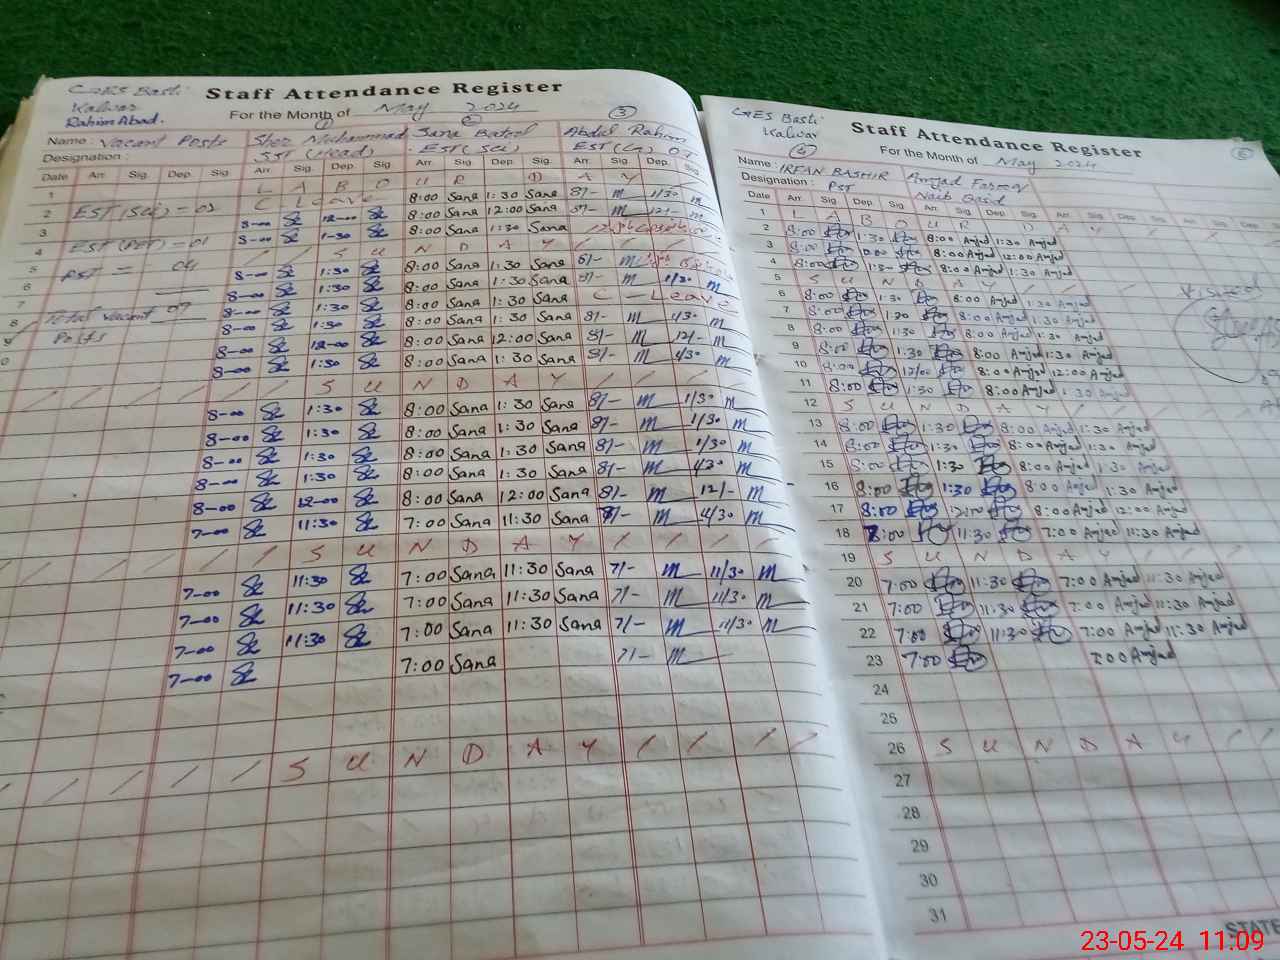 GES Basti
Kalwar
Rahim Abad.
Staff Attendance Register
For the Month of May 2024
Name : Vacant Posts Sher Muhammad Sana Batool Abdul Rahim
Designation : SST (Head) EST (Sci)
Date Arr. Sig. Dep. Sig. Arr. Sig. Dep. Sig. Arr. Sig. Dep. Sig. Arr. Sig. Dep.
1 L A B O U R D A Y
EST (Sci) = 02
C Leave 8:00 Sana 1:30 Sana 8/- m 1/30 m
8-00 12-00 8:00 Sana 12:00 Sana 8/- m 12/- m
8-00 1-30 8:00 Sana 1:30 Sana
EST (PET) = 01
S U N D A Y
PST = 04
8-00 1:30 8:00 Sana 1:30 Sana 8/- m
8-00 1:30 8:00 Sana 1:30 Sana 8/- m 1/30 m
Total vacant 07
Posts
8-00 1:30 8:00 Sana 1:30 Sana C - Leave
8-00 1:30 8:00 Sana 1:30 Sana 8/- m 1/30 m
8-00 12-00 8:00 Sana 12:00 Sana 8/- m 12/- m
8-00 1:30 8:00 Sana 1:30 Sana 8/- m 1/30 m
/ / / / / S U N D A Y / / / /
8-00 1:30 8:00 Sana 1:30 Sana 8/- m 1/30 m
8-00 1:30 8:00 Sana 1:30 Sana 8/- m 1/30 m
8-00 1:30 8:00 Sana 1:30 Sana 8/- m 1/30 m
8-00 1:30 8:00 Sana 1:30 Sana 8/- m 1/30 m
8-00 12-00 8:00 Sana 12:00 Sana 8/- m 12/- m
7-00 11:30 7:00 Sana 11:30 Sana 8/- m 1/30 m
/ / / / / S U N D A Y / / / /
7-00 11:30 7:00 Sana 11:30 Sana 7/- m 11/30 m
7-00 11:30 7:00 Sana 11:30 Sana 7/- m 11/30 m
7-00 11:30 7:00 Sana 11:30 Sana 7/- m 11/30 m
7-00 7:00 Sana 7/- m
/ / / / / S U N D A Y / / / /
GES Basti
Kalwar
Staff Attendance Register
For the Month of May 2024
Name : IRFAN BASHIR Amjad Farooq
Designation : PET Naib Qasid
Date Arr. Sig. Dep. Sig. Arr. Sig. Dep. Sig.
1 L A B O U R D A Y
2 8:00 1:30 8:00 Amjad 1:30 Amjad
3 8:00 8:00 Amjad 12:00 Amjad
4 8:00 1:30 8:00 Amjad 1:30 Amjad
5 S U N D A Y
6 8:00 1:30 8:00 Amjad 1:30 Amjad
7 8:00 1:30 8:00 Amjad 1:30 Amjad
8 8:00 1:30 8:00 Amjad 1:30 Amjad
9 8:00 1:30 8:00 Amjad 1:30 Amjad
10 8:00 12:00 8:00 Amjad 12:00 Amjad
11 8:00 1:30 8:00 Amjad 1:30 Amjad
12 S U N D A Y
13 8:00 1:30 8:00 Amjad 1:30 Amjad
14 8:00 1:30 8:00 Amjad 1:30 Amjad
15 8:00 1:30 8:00 Amjad 1:30 Amjad
16 8:00 1:30 8:00 Amjad 1:30 Amjad
17 8:00 12:00 8:00 Amjad 12:00 Amjad
18 11:30 7:00 Amjad 11:30 Amjad
19 S U N D A Y
20 7:00 11:30 7:00 Amjad 11:30 Amjad
21 7:00 11:30 7:00 Amjad 11:30 Amjad
22 7:00 11:30 7:00 Amjad 11:30 Amjad
23 7:00 7:00 Amjad
24
25
26 S U N D A Y / /
27
28
29
30
31
Visited
STATE
23-05-24 11:09